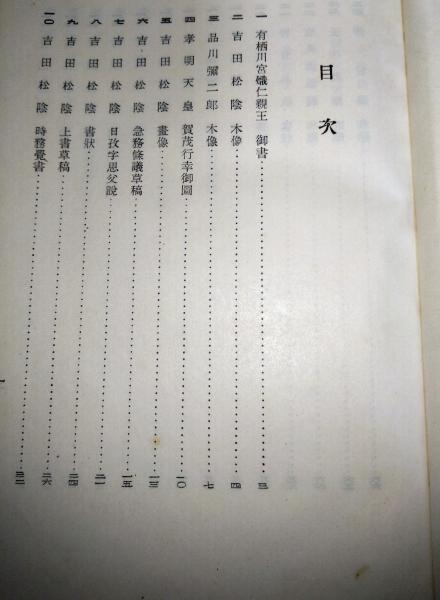 目次
一 有栖川宮熾仁親王 御書 三
二 吉田松陰 木像 四
三 品川彌二郎 木像 七
四 孝明天皇 賀茂行幸御圖 一〇
五 吉田松陰 畫像 一三
六 吉田松陰 急務條議草稿 一五
七 吉田松陰 日孜字思父說 二一
八 吉田松陰 書狀 二四
九 吉田松陰 上書草稿 二六
一〇 吉田松陰 時務覺書 三二